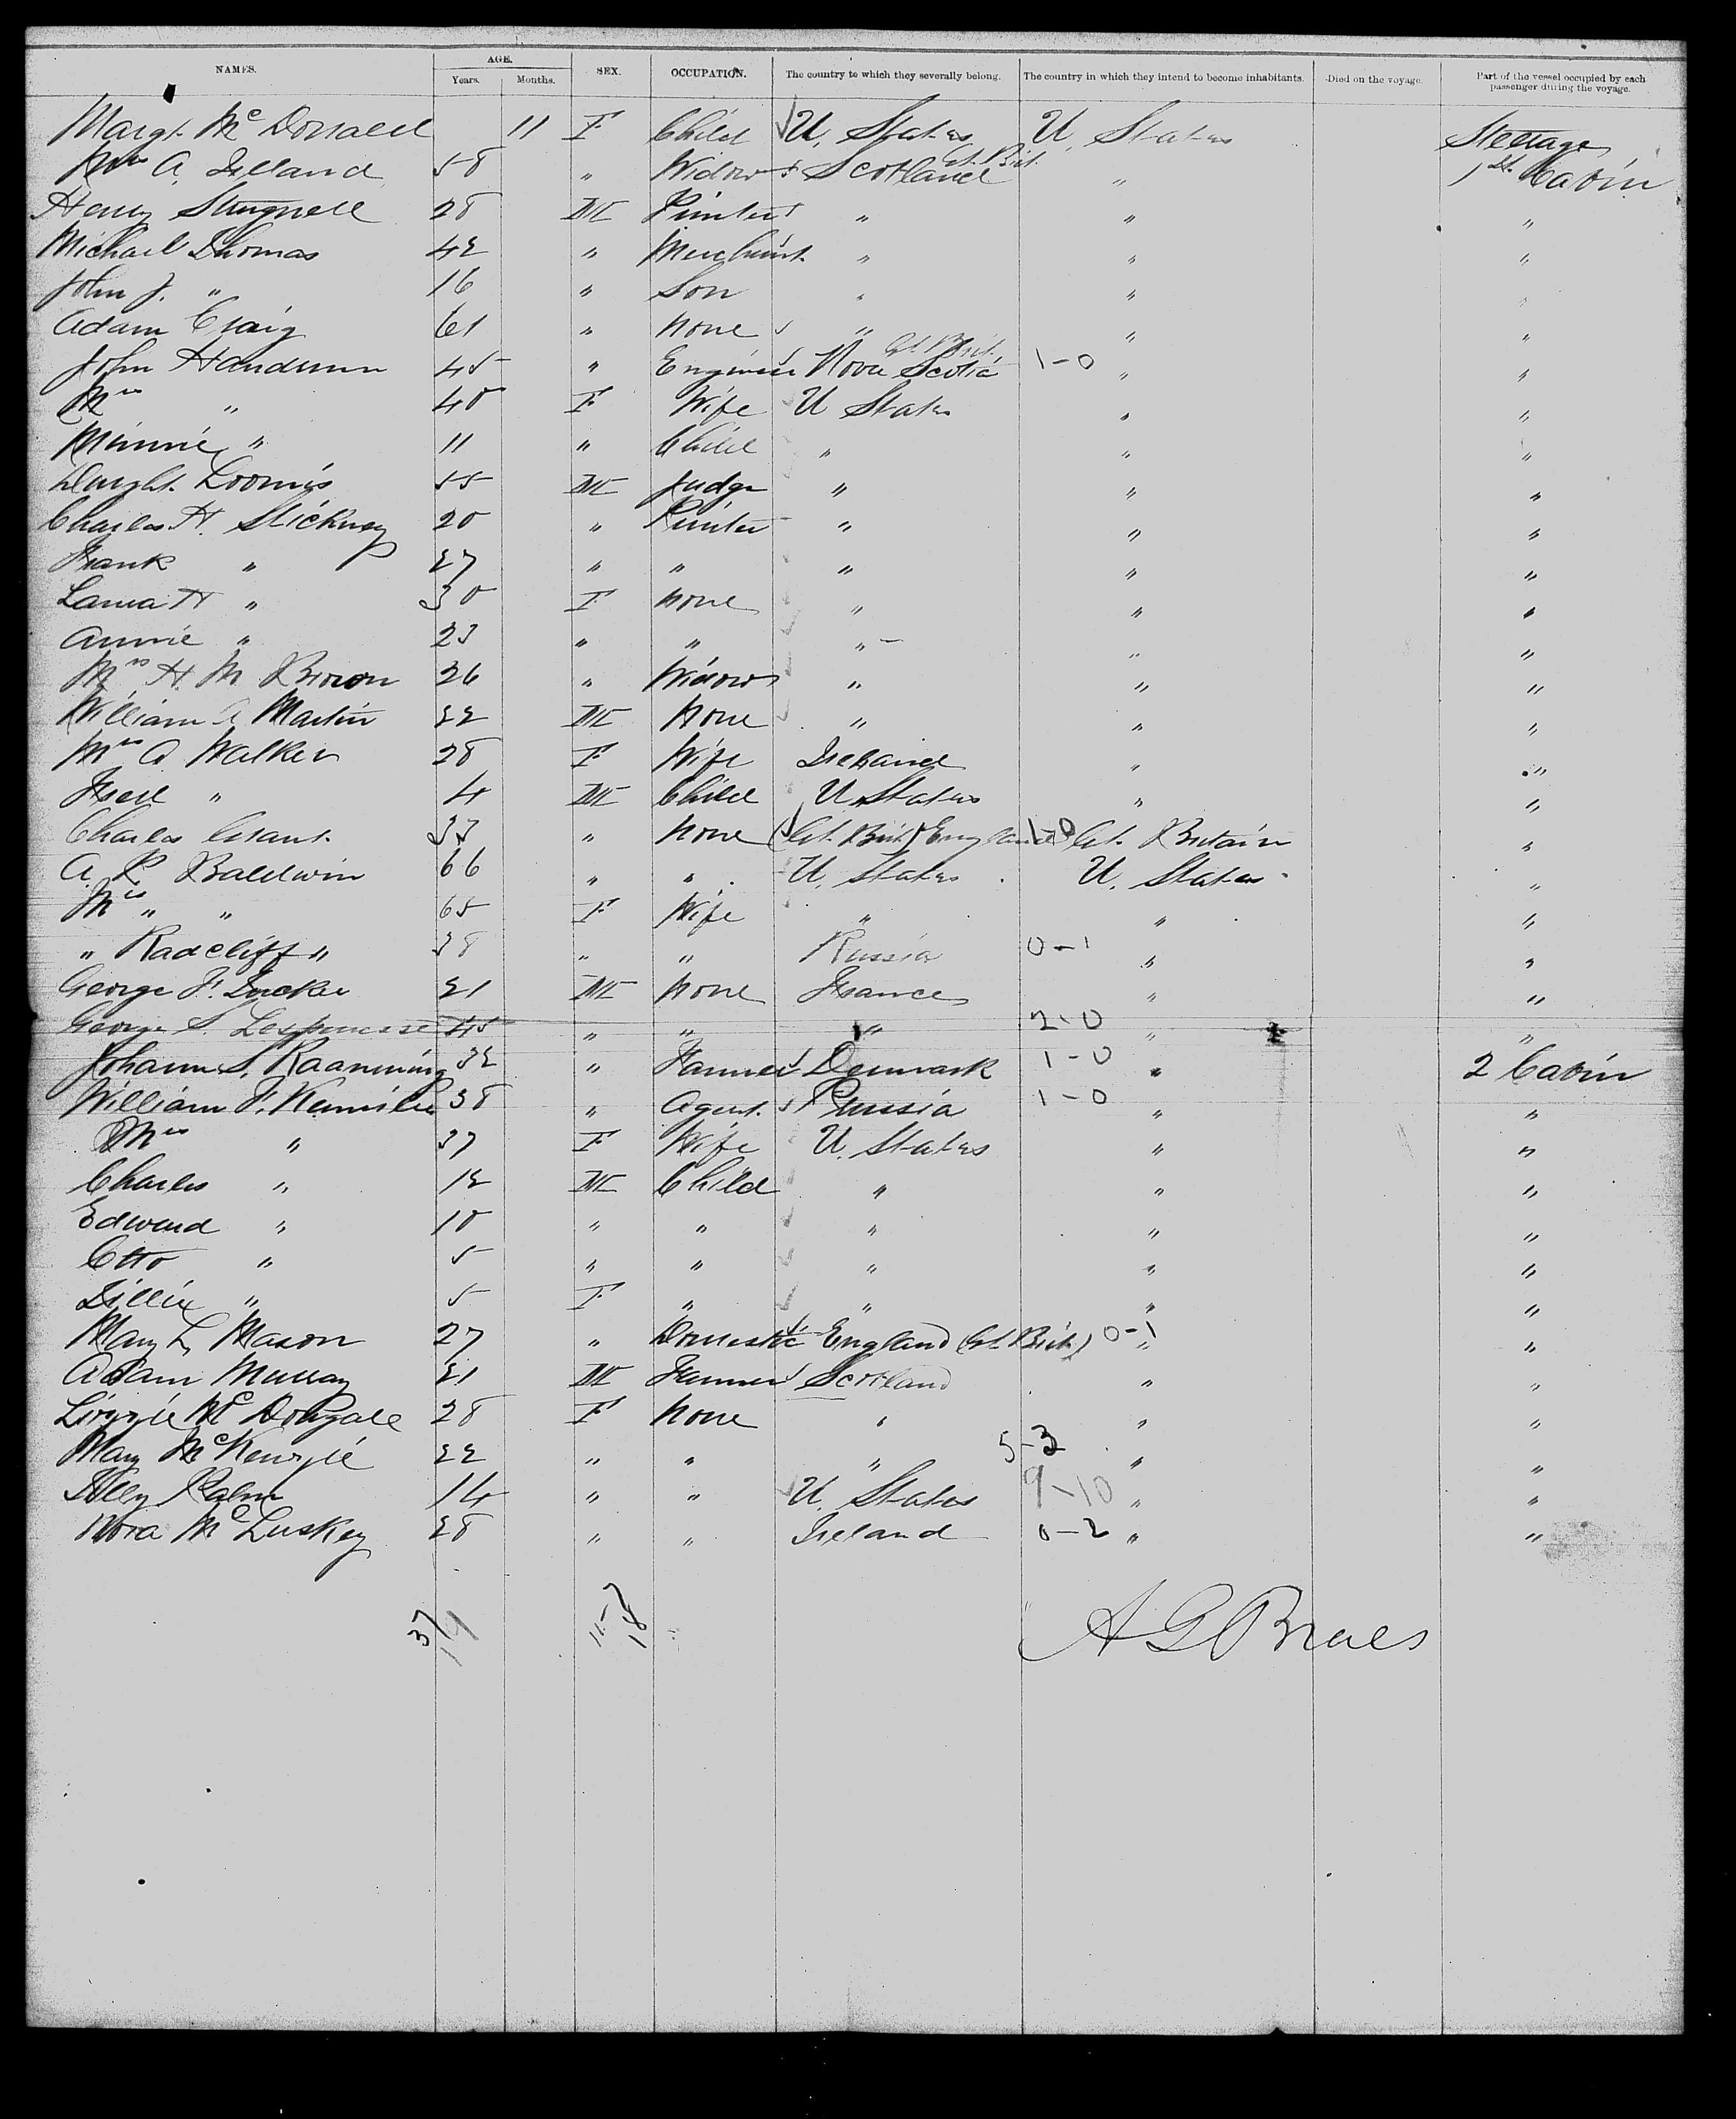 NAMES. AGE. SEX. OCCUPATION. The country to which they severally belong. The country in which they intend to become inhabitants. Died on the voyage. Part of the vessel occupied by each passenger during the voyage.
Years. Months.
Margt. McDonald 11 F Child U. States U. States Steerage
Mrs A. 58 " Widow Scotland Gt. Brit. " 1st Cabin
Henry 28 M Printer " " "
Michael Thomas 42 " Merchant " " "
John J. " 16 " Son " " "
Adam Craig 61 " None " " "
John 45 " Engineer Nova Scotia Gt. Brit. 1-0 " "
Mrs " 40 F Wife U States " "
Minnie " 11 " Child " " "
Dwight Loomis 55 M Judge " " "
Charles H. Stickney 20 " Printer " " "
Frank " 27 " " " " "
Laura H " 30 F None " " "
Annie " 23 " " " " "
Mrs H. M Brown 26 " Widow " " "
William A Martin 22 M None " " "
Mrs A Walker 28 F Wife Ireland " "
Fred " 4 M Child U. States " "
Charles Grant 33 " None (Gt. Brit) England 1-0 Gt. Britain "
A. R Baldwin 66 " " U. States U. States "
Mrs " " 65 F Wife " " "
" Radcliff " 38 " " Russia 0-1 " "
George F. 21 M None France " "
George S. 45 " " " 2-0 " "
Johann S. 32 " Farmer Denmark 1-0 " 2 Cabin
William F. 38 " Agent Prussia 1-0 " "
Mrs " 37 F Wife U. States " "
Charles " 12 M Child " " "
Edward " 10 " " " " "
Otto " 5 " " " " "
Lillie " 5 F " " " "
Mary L Mason 27 " Domestic England (Gt. Brit) 0-1 " "
Adam Murray 21 M Farmer Scotland " "
Lizzie McDougall 28 F None " " "
Mary McKenzie 22 " " " 5-3 " "
14 " " U. States 9-10 " "
Nora McLuskey 28 " " Ireland 0-2 " "
37
19 18